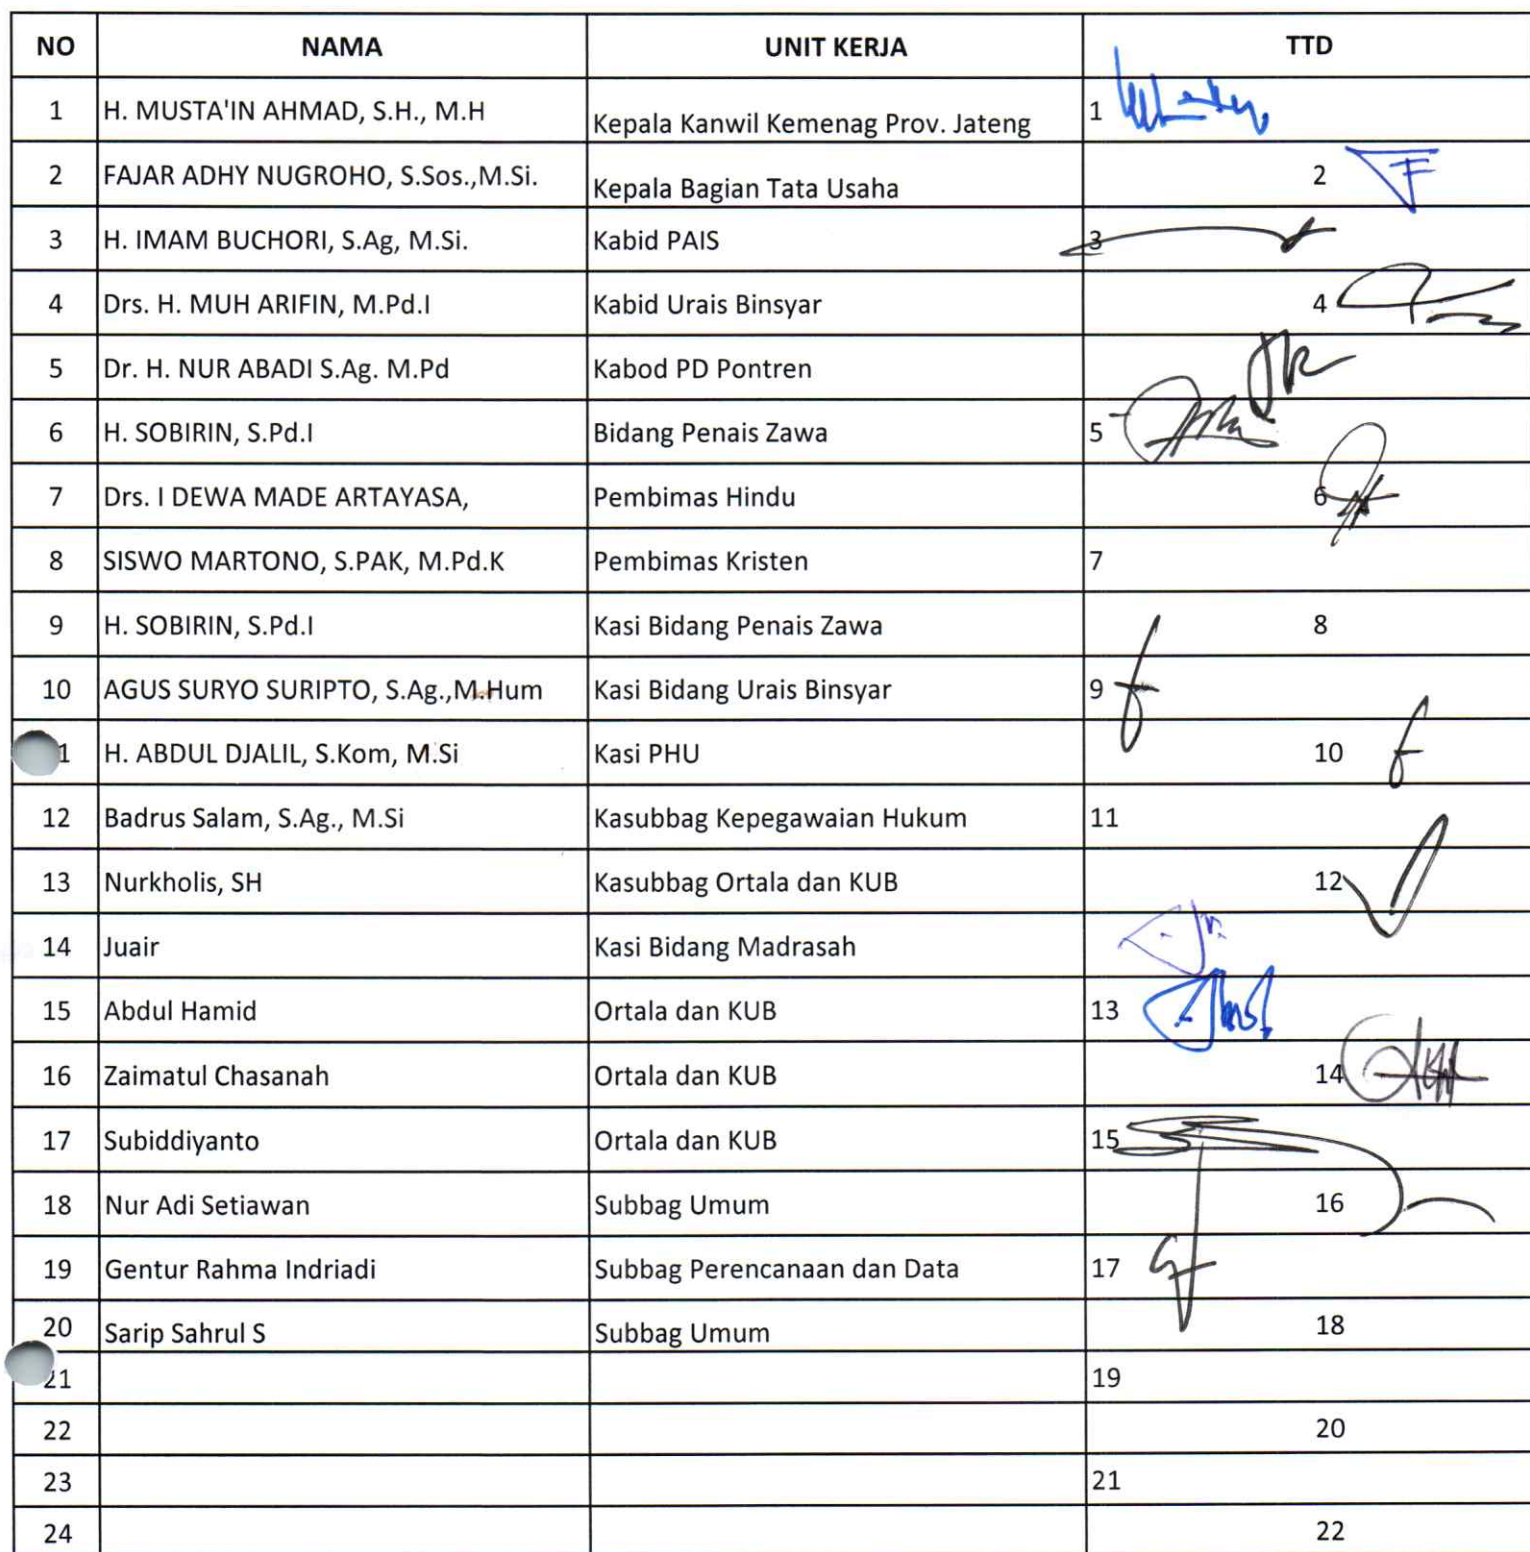 NO NAMA UNIT KERJA TTD
1 H. MUSTA'IN AHMAD, S.H., M.H Kepala Kanwil Kemenag Prov. Jateng 1
2 FAJAR ADHY NUGROHO, S.Sos.,M.Si. Kepala Bagian Tata Usaha 2
3 H. IMAM BUCHORI, S.Ag, M.Si. Kabid PAIS 3
4 Drs. H. MUH ARIFIN, M.Pd.I Kabid Urais Binsyar 4
5 Dr. H. NUR ABADI S.Ag. M.Pd Kabod PD Pontren
6 H. SOBIRIN, S.Pd.I Bidang Penais Zawa 5
7 Drs. I DEWA MADE ARTAYASA, Pembimas Hindu 6
8 SISWO MARTONO, S.PAK, M.Pd.K Pembimas Kristen 7
9 H. SOBIRIN, S.Pd.I Kasi Bidang Penais Zawa 8
10 AGUS SURYO SURIPTO, S.Ag.,M.Hum Kasi Bidang Urais Binsyar 9
1 H. ABDUL DJALIL, S.Kom, M.Si Kasi PHU 10
12 Badrus Salam, S.Ag., M.Si Kasubbag Kepegawaian Hukum 11
13 Nurkholis, SH Kasubbag Ortala dan KUB 12
14 Juair Kasi Bidang Madrasah
15 Abdul Hamid Ortala dan KUB 13
16 Zaimatul Chasanah Ortala dan KUB 14
17 Subiddiyanto Ortala dan KUB 15
18 Nur Adi Setiawan Subbag Umum 16
19 Gentur Rahma Indriadi Subbag Perencanaan dan Data 17
20 Sarip Sahrul S Subbag Umum 18
21 19
22 20
23 21
24 22